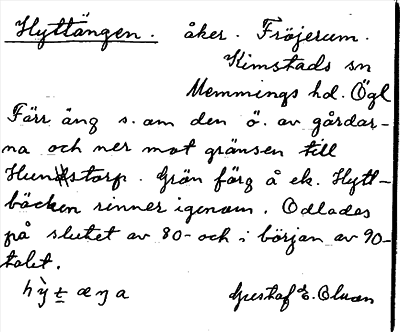 Hyttängen. åker. Fröjerum.
Kimstads sn
Memmings hd. Ögl
Förr äng s. om den ö. av gårdar-
na och ner mot gränsen till
Hundstorp. Grön färg å ek. Hytt-
bäcken rinner igenom. Odlades
på slutet av 80- och i början av 90-
talet.
Gustaf E. Olson